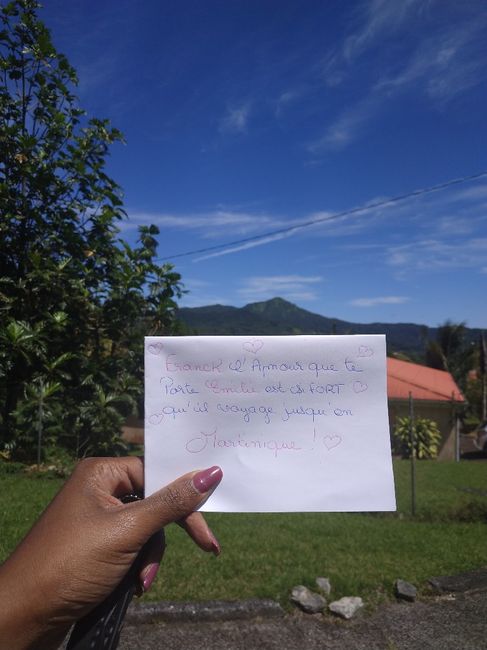 Franck l'Amour que te
Porte Emilie est si FORT
qu'il voyage jusqu'en
Martinique !